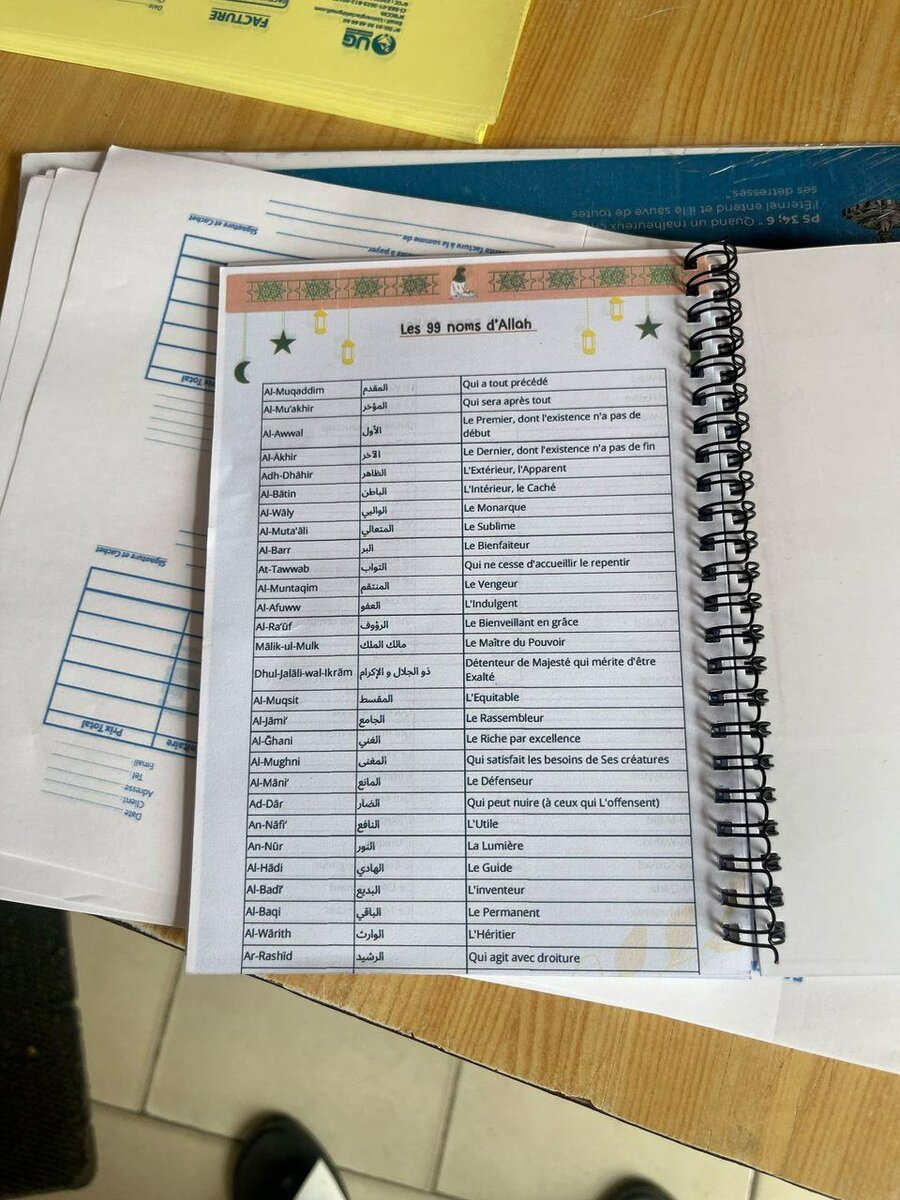 FACTURE
UG
PS 34; 6 " Quand un malheureux
l'Éternel entend et il le sauve de toutes
ses détresses."
Signature et Cachet
Signature et Cachet
Prix Total
Date :
Client :
Adresse
Tel:
Email:
Les 99 noms d'Allah
Al-Muqaddim المقدم Qui a tout précédé
Al-Mu'akhir المؤخر Qui sera après tout
Al-Awwal الأول Le Premier, dont l'existence n'a pas de
début
Al-Ākhir الآخر Le Dernier, dont l'existence n'a pas de fin
Adh-Dhāhir الظاهر L'Extérieur, l'Apparent
Al-Bātin الباطن L'Intérieur, le Caché
Al-Wāly الوالي Le Monarque
Al-Muta'āli المتعالي Le Sublime
Al-Barr البر Le Bienfaiteur
At-Tawwab التواب Qui ne cesse d'accueillir le repentir
Al-Muntaqim المنتقم Le Vengeur
Al-Afuww العفو L'Indulgent
Al-Ra'ūf الرؤوف Le Bienveillant en grâce
Mālik-ul-Mulk مالك الملك Le Maître du Pouvoir
Dhul-Jalāli-wal-Ikrām ذو الجلال و الإكرام Détenteur de Majesté qui mérite d'être
Exalté
Al-Muqsit المقسط L'Equitable
Al-Jāmi' الجامع Le Rassembleur
Al-Ğhani الغني Le Riche par excellence
Al-Mughni المغنى Qui satisfait les besoins de Ses créatures
Al-Māni' المانع Le Défenseur
Ad-Dār الضار Qui peut nuire (à ceux qui L'offensent)
An-Nāfi' النافع L'Utile
An-Nūr النور La Lumière
Al-Hādi الهادي Le Guide
Al-Badī' البديع L'inventeur
Al-Baqi الباقي Le Permanent
Al-Wārith الوارث L'Héritier
Ar-Rashīd الرشيد Qui agit avec droiture